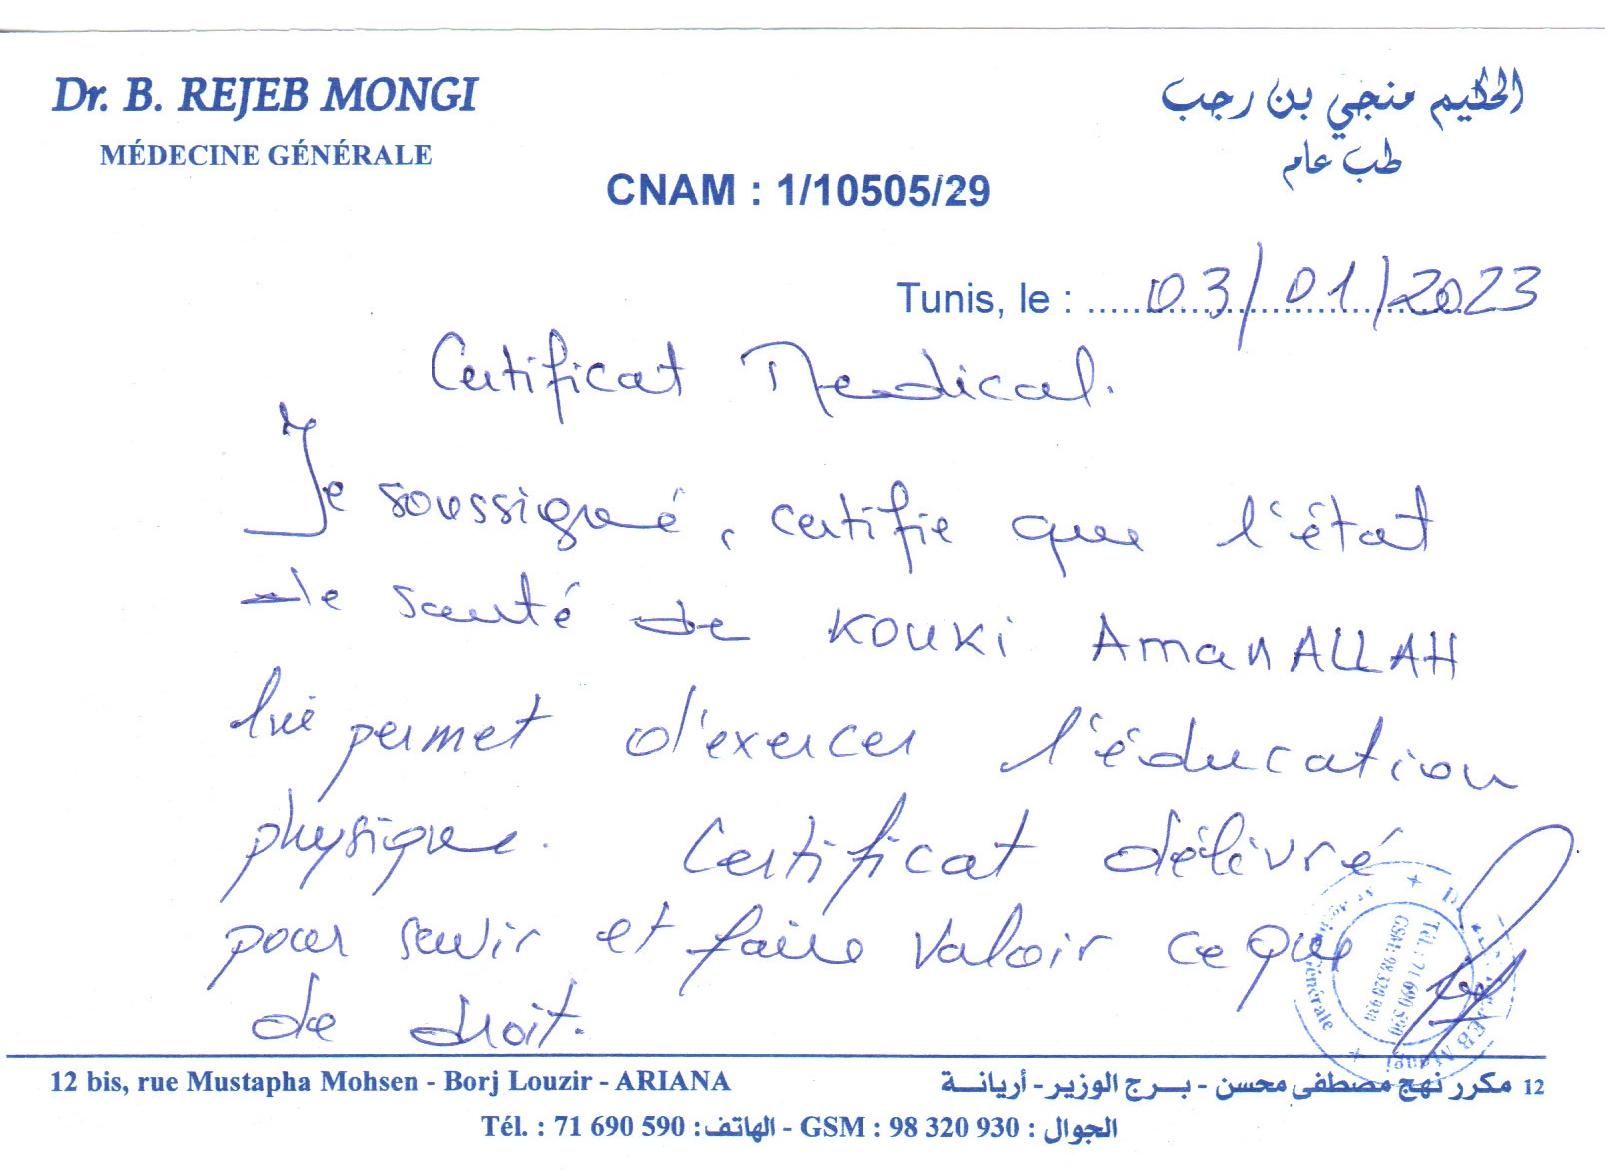 Dr. B. REJEB MONGI
MÉDECINE GÉNÉRALE
الحكيم منجي بن رجب
طب عام
CNAM : 1/10505/29
Tunis, le : 03/01/2023
Certificat Medical.
Je soussigné, certifie que l'état
de santé de KOUKi AmanALLAH
lui permet d'exercer l'éducation
physique. Certificat délivré
pour servir et faire valoir ce que
de droit.
Tél. : 71 690 590
GSM : 98 320 930
Générale
12 bis, rue Mustapha Mohsen - Borj Louzir - ARIANA
12 مكرر نهج مصطفى محسن - بـرج الوزير - أريانـة
Tél. : 71 690 590 : الهاتف - GSM : 98 320 930 : الجوال